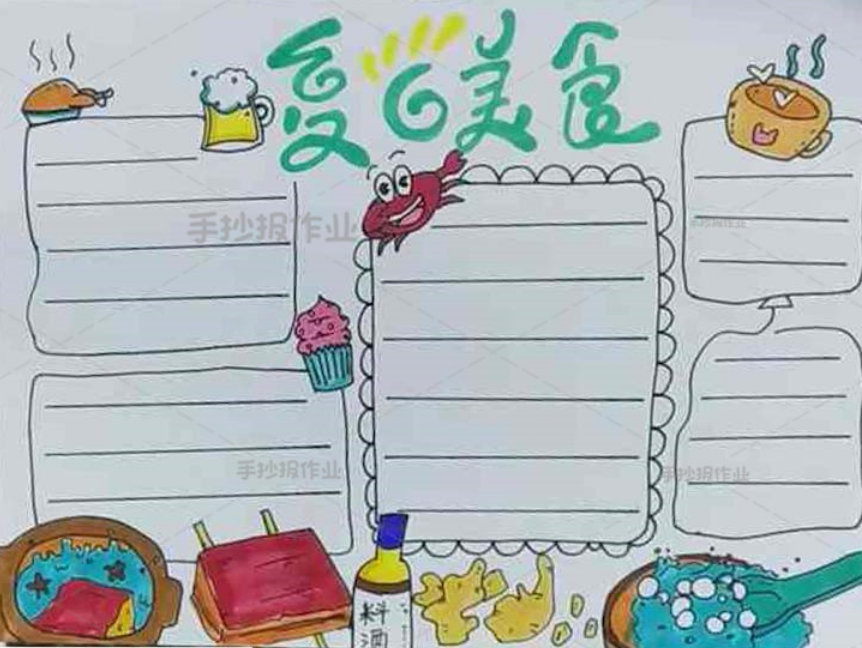 夏日美食
手抄报作业
手抄报作业
手抄报作业
手抄报作业
料
酒